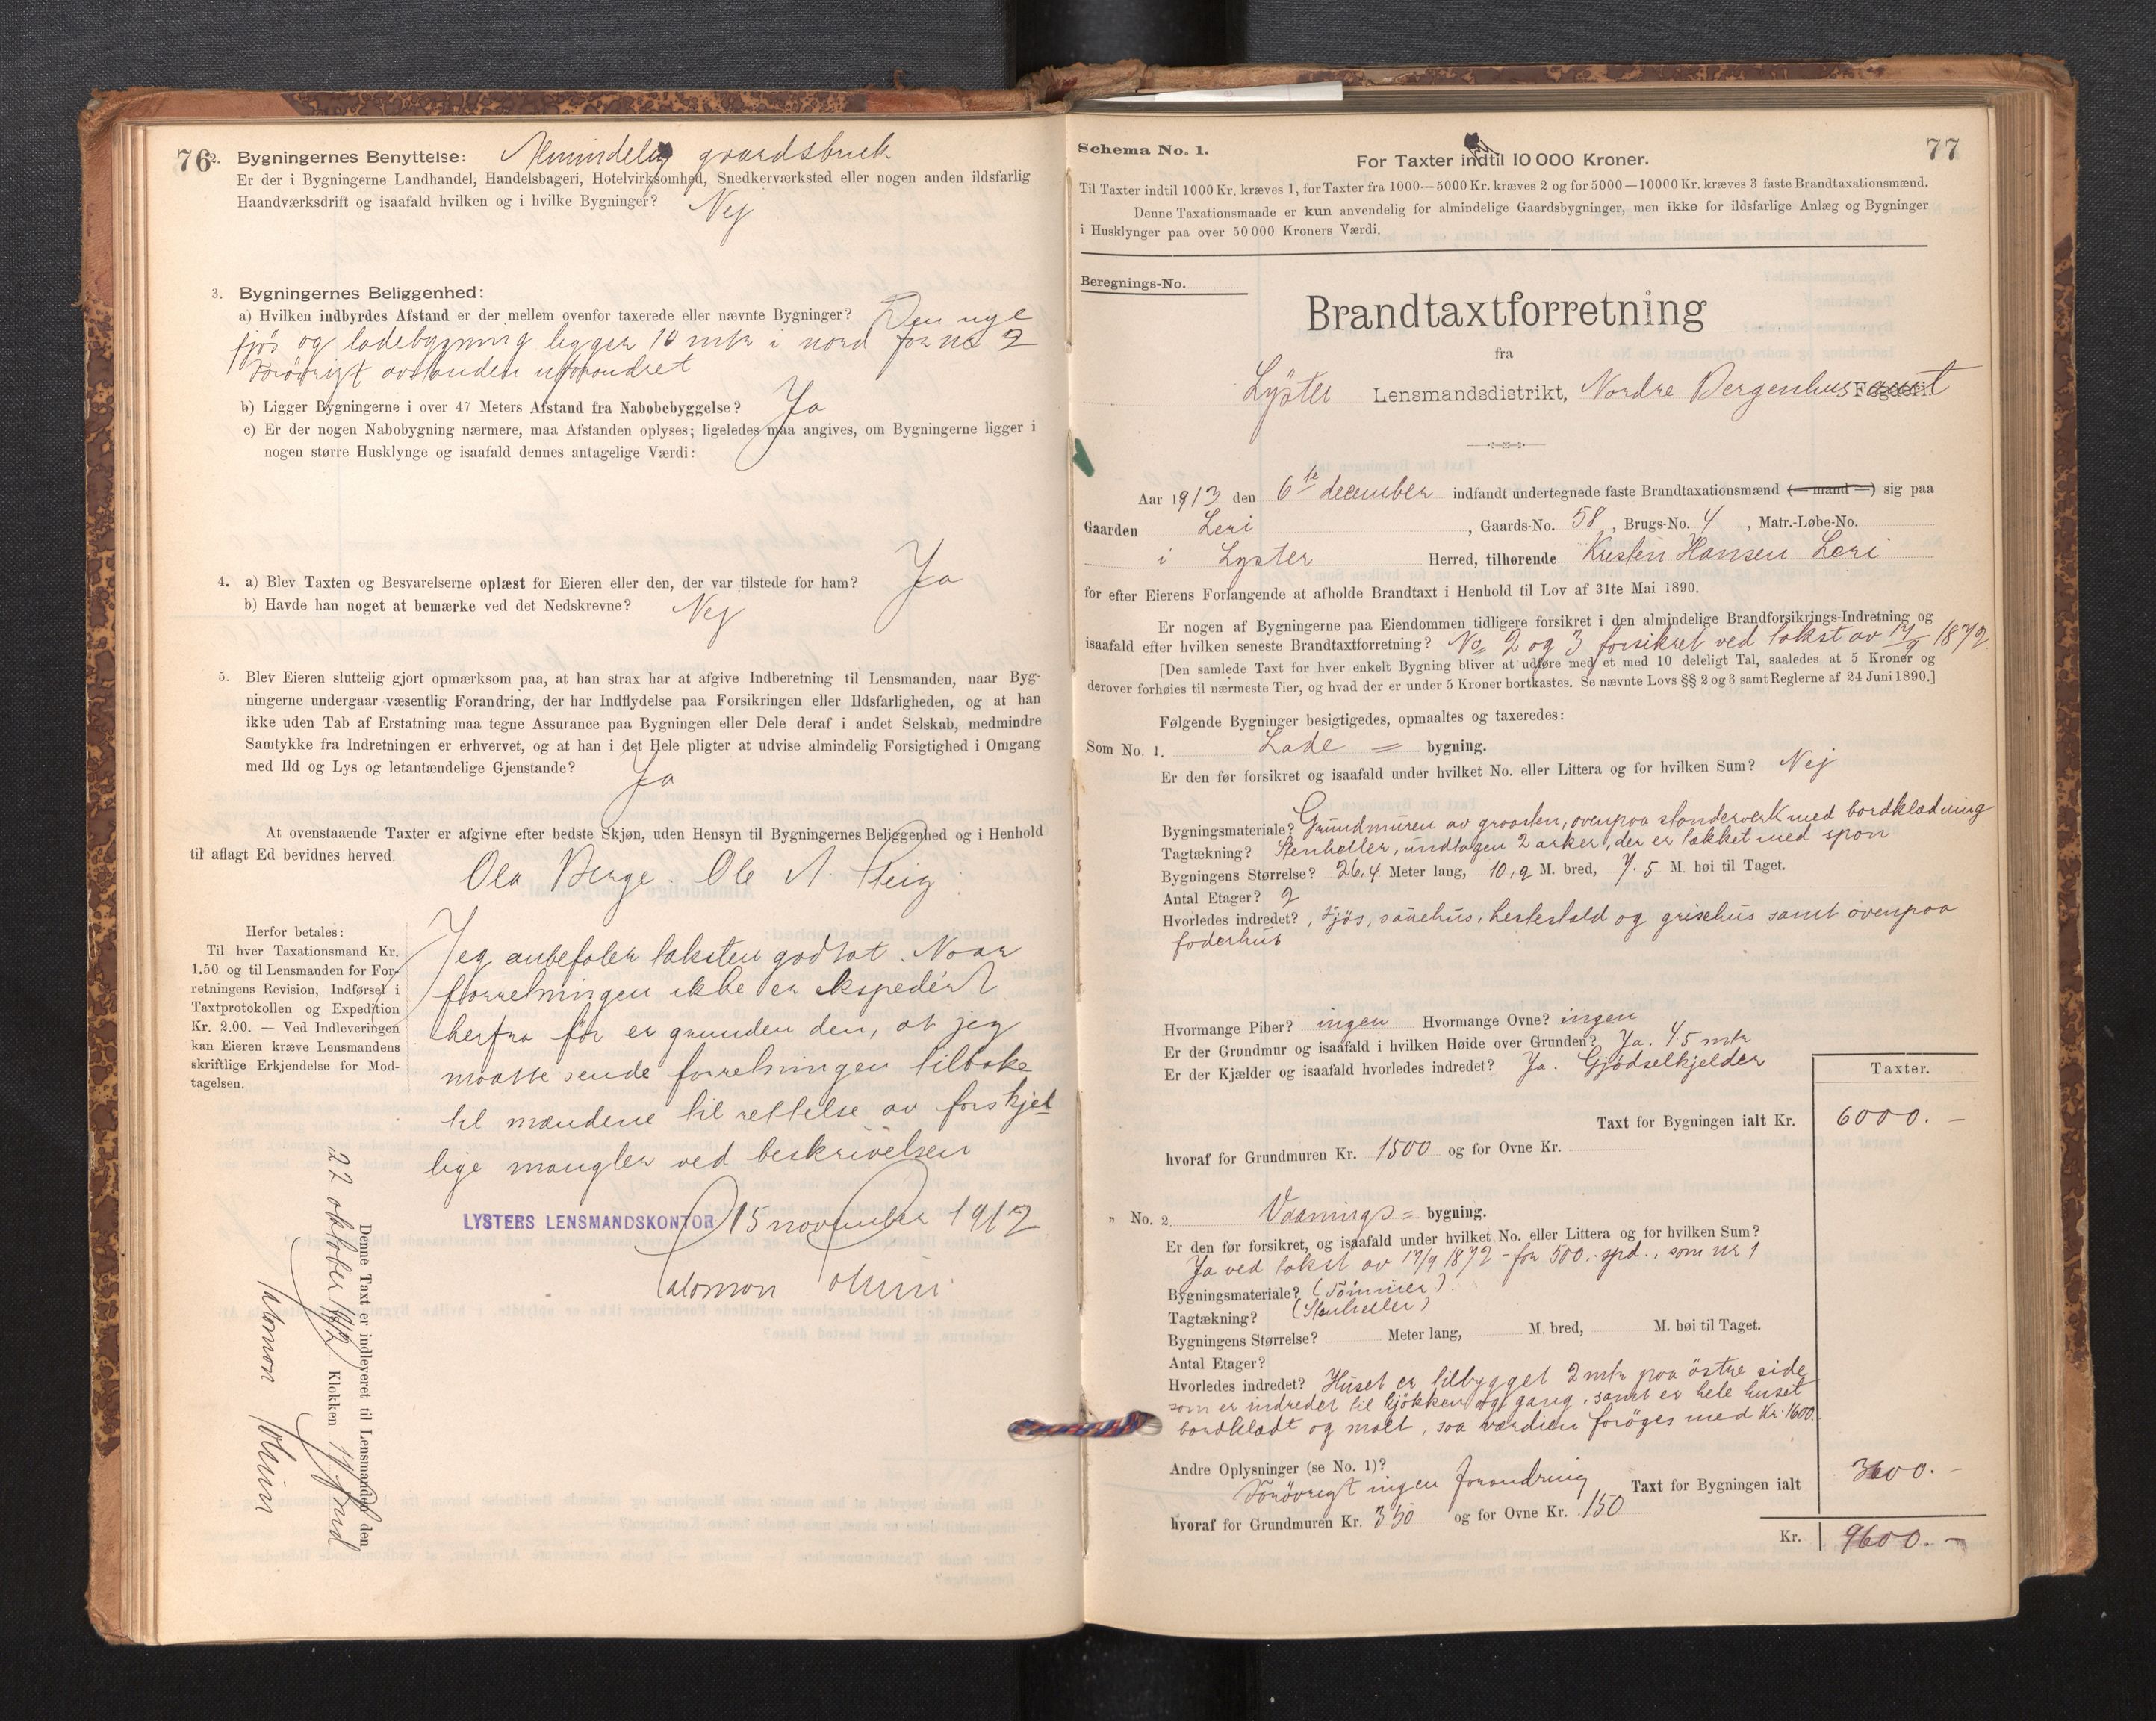 76
2. Bygningernes Benyttelse: Almindelig gaardsbruk
Er der i Bygningerne Landhandel, Handelsbageri, Hotelvirksomhed, Snedkerværksted eller nogen anden ildsfarlig
Haandværksdrift og isaafald hvilken og i hvilke Bygninger? Nej
3. Bygningernes Beliggenhed:
a) Hvilken indbyrdes Afstand er der mellem ovenfor taxerede eller nævnte Bygninger? Den nye
fjøs og ladebygning ligger 10 mtr i nord for no 2
Forøvrigt avstanden uforandret
b) Ligger Bygningerne i over 47 Meters Afstand fra Nabobebyggelse? Ja
c) Er der nogen Nabobygning nærmere, maa Afstanden oplyses; ligeledes maa angives, om Bygningerne ligger i
nogen større Husklynge og isaafald dennes antagelige Værdi:
4. a) Blev Taxten og Besvarelserne oplæst for Eieren eller den, der var tilstede for ham? Ja
b) Havde han noget at bemærke ved det Nedskrevne? Nej
5. Blev Eieren sluttelig gjort opmærksom paa, at han strax har at afgive Indberetning til Lensmanden, naar Byg-
ningerne undergaar væsentlig Forandring, der har Indflydelse paa Forsikringen eller Ildsfarligheden, og at han
ikke uden Tab af Erstatning maa tegne Assurance paa Bygningen eller Dele deraf i andet Selskab, medmindre
Samtykke fra Indretningen er erhvervet, og at han i det Hele pligter at udvise almindelig Forsigtighed i Omgang
med Ild og Lys og letantændelige Gjenstande? Ja
At ovenstaaende Taxter er afgivne efter bedste Skjøn, uden Hensyn til Bygningernes Beliggenhed og i Henhold
til aflagt Ed bevidnes herved.
Ola Berge. Ole A.
Herfor betales:
Til hver Taxationsmand Kr.
1.50 og til Lensmanden for For-
retningens Revision, Indførsel i
Taxtprotokollen og Expedition
Kr. 2.00. — Ved Indleveringen
kan Eieren kræve Lensmandens
skriftlige Erkjendelse for Mod-
tagelsen.
Jeg anbefaler taksten godtat. Naar
forretningen ikke er ekspedert
herfra før er grunden den, at jeg
maatte sende forretningen tilbake
til mændene til rettelse av forskjel-
lige mangler ved beskrivelsen
LYSTERS LENSMANDSKONTOR 15 november 1912
Salomon
Denne Taxt er indleveret til Lensmanden den
22 oktober 1912 Klokken 12 Mid
Salomon
77
Schema No. 1.
For Taxter indtil 10 000 Kroner.
Til Taxter indtil 1000 Kr. kræves 1, for Taxter fra 1000—5000 Kr. kræves 2 og for 5000—10000 Kr. kræves 3 faste Brandtaxationsmænd.
Denne Taxationsmaade er kun anvendelig for almindelige Gaardsbygninger, men ikke for ildsfarlige Anlæg og Bygninger
i Husklynger paa over 50 000 Kroners Værdi.
Beregnings-No.
Brandtaxtforretning
fra
Lyster Lensmandsdistrikt, Nordre Bergenhus amt Fogderi.
Aar 1913 den 6te december indfandt undertegnede faste Brandtaxationsmænd (— mand —) sig paa
Gaarden Leri , Gaards-No. 58 , Brugs-No. 4 , Matr.-Løbe-No.
i Lyster Herred, tilhørende Kristen Hansen Leri
for efter Eierens Forlangende at afholde Brandtaxt i Henhold til Lov af 31te Mai 1890.
Er nogen af Bygningerne paa Eiendommen tidligere forsikret i den almindelige Brandforsikrings-Indretning og
isaafald efter hvilken seneste Brandtaxtforretning? No 2 og 3 forsikret ved takst av 17/9 1872
[Den samlede Taxt for hver enkelt Bygning bliver at udføre med et med 10 deleligt Tal, saaledes at 5 Kroner og
derover forhøies til nærmeste Tier, og hvad der er under 5 Kroner bortkastes. Se nævnte Lovs §§ 2 og 3 samt Reglerne af 24 Juni 1890.]
Følgende Bygninger besigtigedes, opmaaltes og taxeredes:
Som No. 1. Lade = bygning.
Er den før forsikret og isaafald under hvilket No. eller Littera og for hvilken Sum? Nej
Bygningsmateriale? Grundmuren av graasten, ovenpaa standerverk med bordklædning
Tagtækning? Stenheller, undtagen 2 arker, der er tækket med spon
Bygningens Størrelse? 26,4 Meter lang, 10,2 M. bred, 7.5 M. høi til Taget.
Antal Etager? 2
Hvorledes indredet? , Fjøs, sauehus, hestestald og grisehus samt ovenpaa
foderhus
Hvormange Piber? ingen Hvormange Ovne? ingen
Er der Grundmur og isaafald i hvilken Høide over Grunden? Ja. 4.5 mtr
Er der Kjælder og isaafald hvorledes indredet? Ja. Gjødselkjelder
Taxter.
Taxt for Bygningen ialt Kr. 6000. —
hvoraf for Grundmuren Kr. 1500 og for Ovne Kr.
„ No. 2. Vaanings = bygning.
Er den før forsikret, og isaafald under hvilket No. eller Littera og for hvilken Sum?
Ja ved takst av 17/9 1872 - for 500. spd., som nr 1
Bygningsmateriale? (Tømmer)
Tagtækning? (Stenheller)
Bygningens Størrelse? Meter lang, M. bred, M. høi til Taget.
Antal Etager?
Hvorledes indredet? Huset er tilbygget 2 mtr paa østre side
som er indredet til kjøkken og gang, samt er hele huset
bordklædt og malt, saa værdien forøges med Kr. 1600.
Andre Oplysninger (se No. 1)?
Forøvrigt ingen forandring Taxt for Bygningen ialt 3600. —
hvoraf for Grundmuren Kr. 350 og for Ovne Kr. 150
Kr. 9600. —